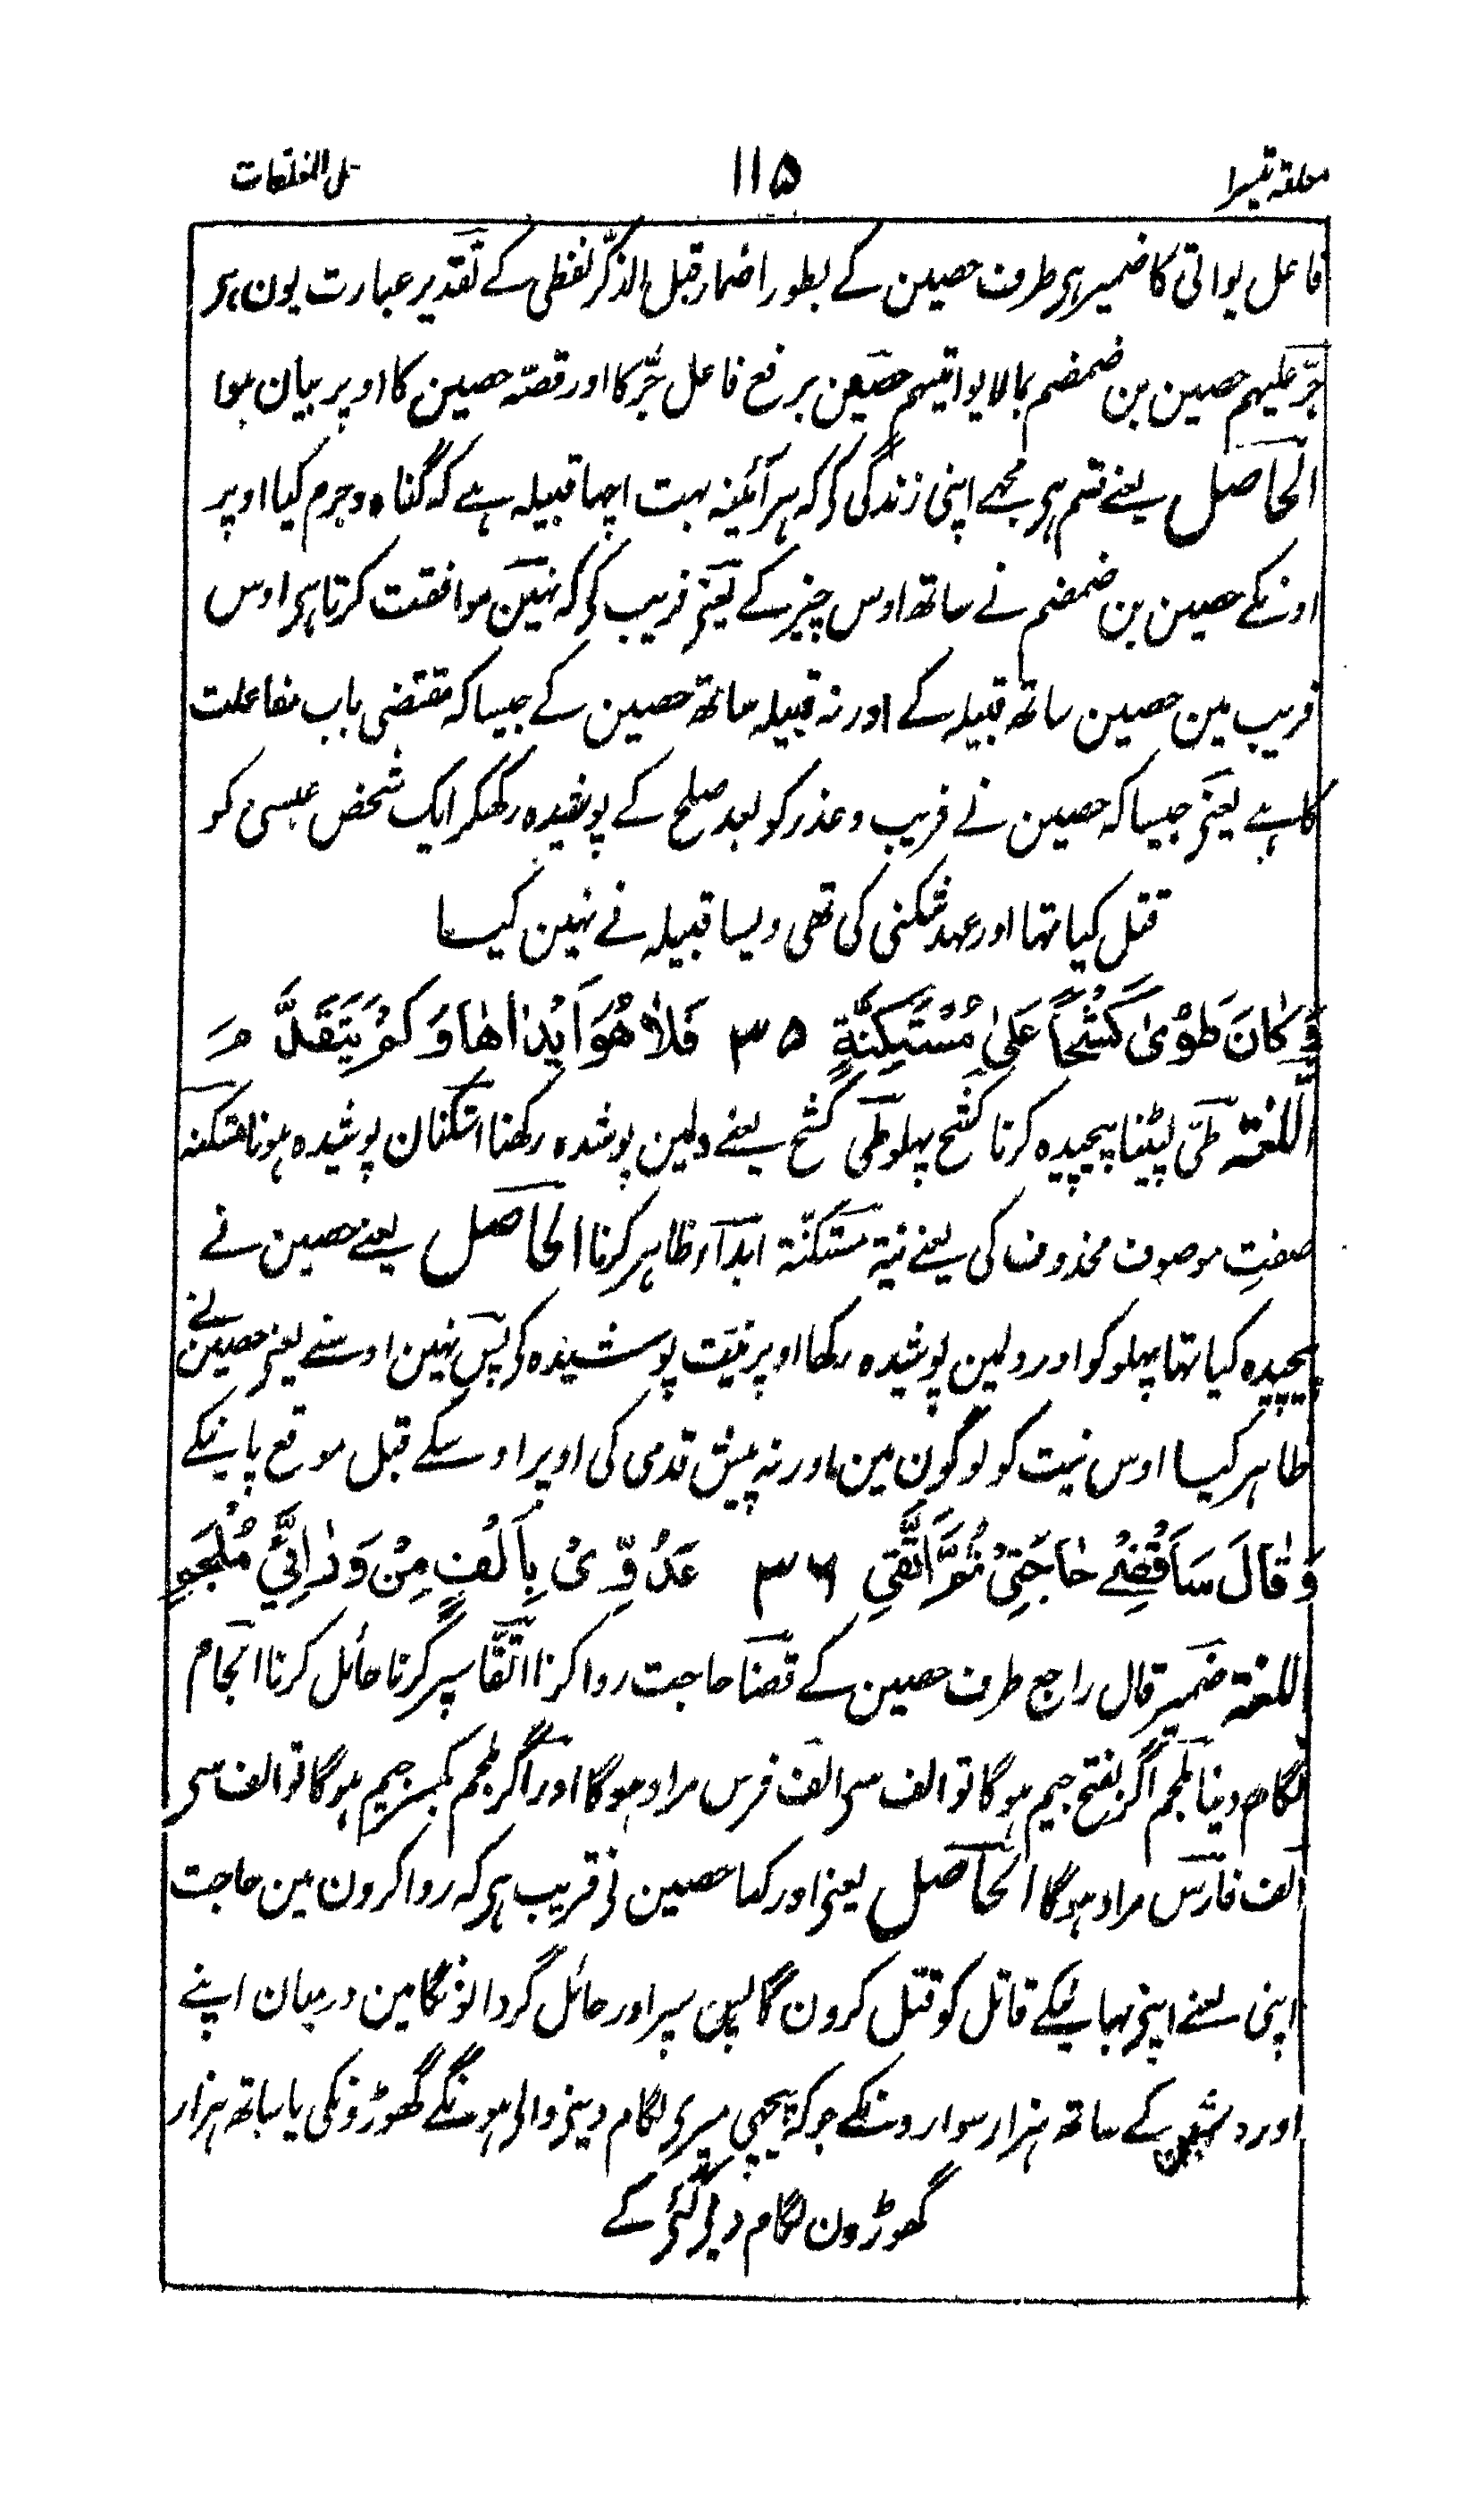 معلقہ تیسرا ۱۱۵ حل المغلقات
فاعل یواتی کا ضمیر ہی طرف حصین کے بطور اضمار قبل الذکر لفظی کے تقدیر عبارت یون ہی
جرّ علیہم حصین بن ضمضم بمالا یواتیہم حصین برفع فاعل جرّ کا اور قصّہ حصین کا اوپر بیان ہوا
الحاصل یعنے قسم ہی مجھے اپنی زندگی کی کہ ہر آئینہ بہت اچھا قبیلہ ہے کہ گناہ وجرم کیا اوپر
اونکے حصین بن ضمضم نے ساتھ اوس چیز کے یعنی فریب کی کہ نہین موافقت کرتا ہی اوس
فریب مین حصین ساتھ قبیلہ کے اور نہ قبیلہ ساتھ حصین کے جیسا کہ مقتضی باب مفاعلت
کا ہے یعنی جیسا کہ حصین نے فریب وعذر کو بعد صلح کے پوشیدہ رکھکر ایک شخص عبسی کو
قتل کیا تھا اور عہد شکنی کی تھی ویسا قبیلہ نے نہین کیسا
وَكَانَ طَوٰى كَشْحًا عَلىٰ مُسْتَكِنَّةٍ ۳۵ فَلَا هُوَ اَبْدَاهَا وَلَمْ يَتَقَدَّمِ
اللغۃ طیّ لپٹنا پیچیدہ کرنا کشح پہلو طی کشح یعنے دلمین پوشدہ رکھنا استکنان پوشیدہ ہونا مستکنہ
صفتِ موصوف محذوف کی یعنے نیۃ مستکنّۃ ابداء ظاہر کرنا الحاصل یعنے حصین نے
پیچیدہ کیا تھا پہلو کو اور دلمین پوشیدہ رکھا اوپر نیّت پوشیدہ کی پس نہین اوسنے یعنی حصین نے
ظاہر کیسا اوس نیت کو لوگون مین اور نہ پیش قدمی کی اوپر اوسکے قبل موقع پانیکے
وَقَالَ سَاَقْضِيْ حَاجَتِيْ ثُمَّ اَتَّقِي ۳۶ عَدُوِّىْ بِاَلْفٍ مِنْ وَرَائِيَ مُلْجَمِ
اللغۃ ضمیر قال راجع طرف حصین کے قضا حاجت روا کرنا اتّقا سپر کرنا حائل کرنا الجام
لگام دینا ملجم اگر بفتح جیم ہوگا تو الف سی الف فرس مراد ہوگا اور اگر ملجم بکسر جیم ہوگا تو الف سی
الف فارس مراد ہوگا الحاصل یعنی اور کہا حصین نی قریب ہی کہ روا کرون مین حاجت
اپنی یعنے اپنی بہائیکے قاتل کو قتل کرون گا پس سپر اور حائل گردانونگا مین درمیان اپنے
اور دشمن کے ساتھ ہزار سوارونکے جو کہ پیچھی میری لگام دینی والی ہونگے گھوڑونکی یا ساتھ ہزار
گھوڑون لگام دی گئی کے